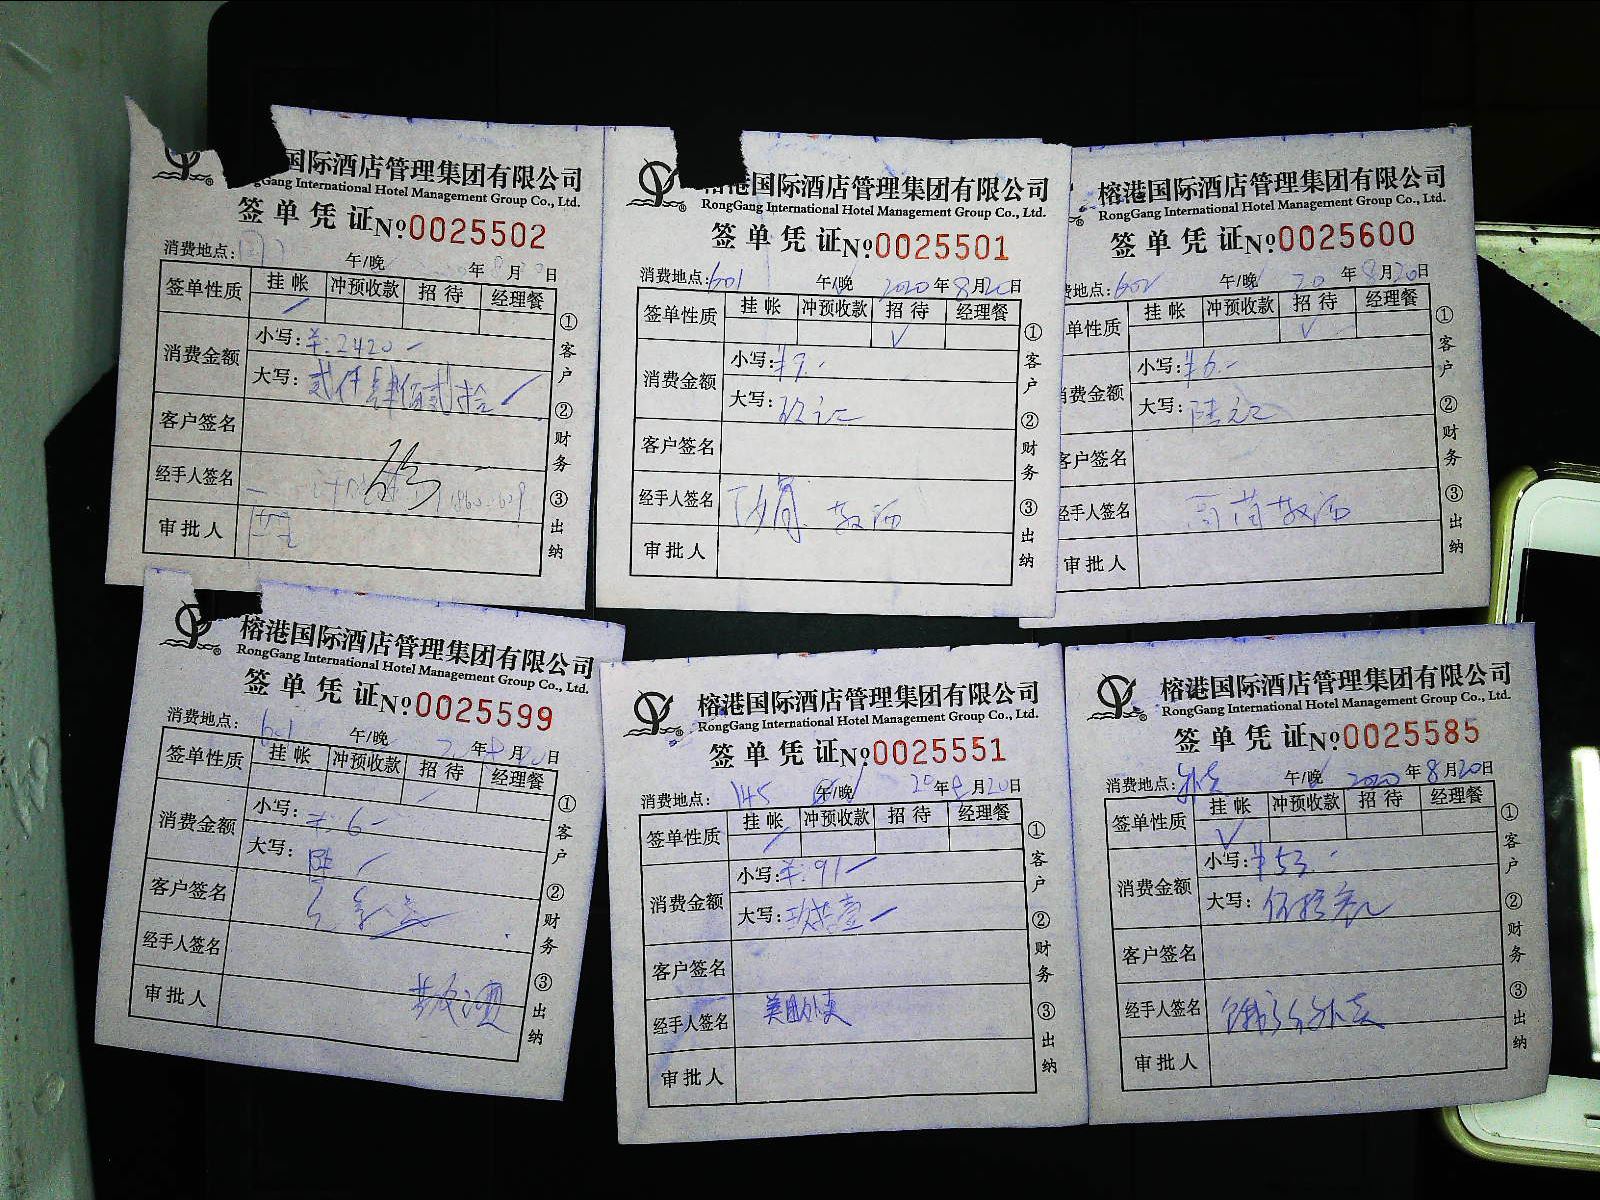 国际酒店管理集团有限公司
Gang International Hotel Management Group Co., Ltd.
签单凭证 No 0025502
消费地点: 午/晚 年8月20日
签单性质 挂帐 冲预收款 招待 经理餐
消费金额 小写: ¥:2420-
大写: 贰仟肆佰贰拾
客户签名
经手人签名
审批人
①客户 ②财务 ③出纳
榕港国际酒店管理集团有限公司
RongGang International Hotel Management Group Co., Ltd.
签单凭证 No 0025501
消费地点: 601 午/晚 2020年8月20日
签单性质 挂帐 冲预收款 招待 经理餐
√
消费金额 小写: ¥9.-
大写: 玖元
客户签名
经手人签名
审批人
①客户 ②财务 ③出纳
榕港国际酒店管理集团有限公司
RongGang International Hotel Management Group Co., Ltd.
签单凭证 No 0025600
费地点: 602 午/晚 20年8月20日
单性质 挂帐 冲预收款 招待 经理餐
√
消费金额 小写: ¥6.-
大写: 陆元
客户签名
经手人签名
审批人
①客户 ②财务 ③出纳
榕港国际酒店管理集团有限公司
RongGang International Hotel Management Group Co., Ltd.
签单凭证 No 0025599
消费地点: 601 午/晚 年8月20日
签单性质 挂帐 冲预收款 招待 经理餐
消费金额 小写: ¥:6-
大写: 陆
客户签名
经手人签名
审批人
①客户 ②财务 ③出纳
榕港国际酒店管理集团有限公司
RongGang International Hotel Management Group Co., Ltd.
签单凭证 No 0025551
消费地点: 145 午/晚 20年8月20日
签单性质 挂帐 冲预收款 招待 经理餐
消费金额 小写: ¥:91-
大写: 玖拾壹
客户签名
经手人签名 美团外卖
审批人
①客户 ②财务 ③出纳
榕港国际酒店管理集团有限公司
RongGang International Hotel Management Group Co., Ltd.
签单凭证 No 0025585
消费地点: 外卖 午/晚 2020年8月20日
签单性质 挂帐 冲预收款 招待 经理餐
√
消费金额 小写: ¥53.-
大写: 伍拾叁元
客户签名
经手人签名 饿了么外卖
审批人
①客户 ②财务 ③出纳